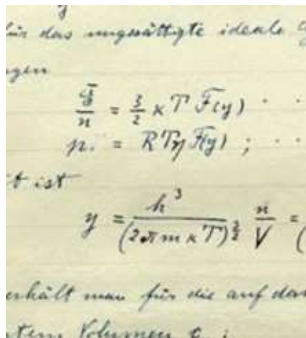 für das ungesättigte ideale G
gen
Ē/n = 3/2 κ T F(y) . .
= R T F(y) ; . .
t ist
y = h³/(2πmκT)^3/2 n/V = (
erhält man für die auf das
Volumen